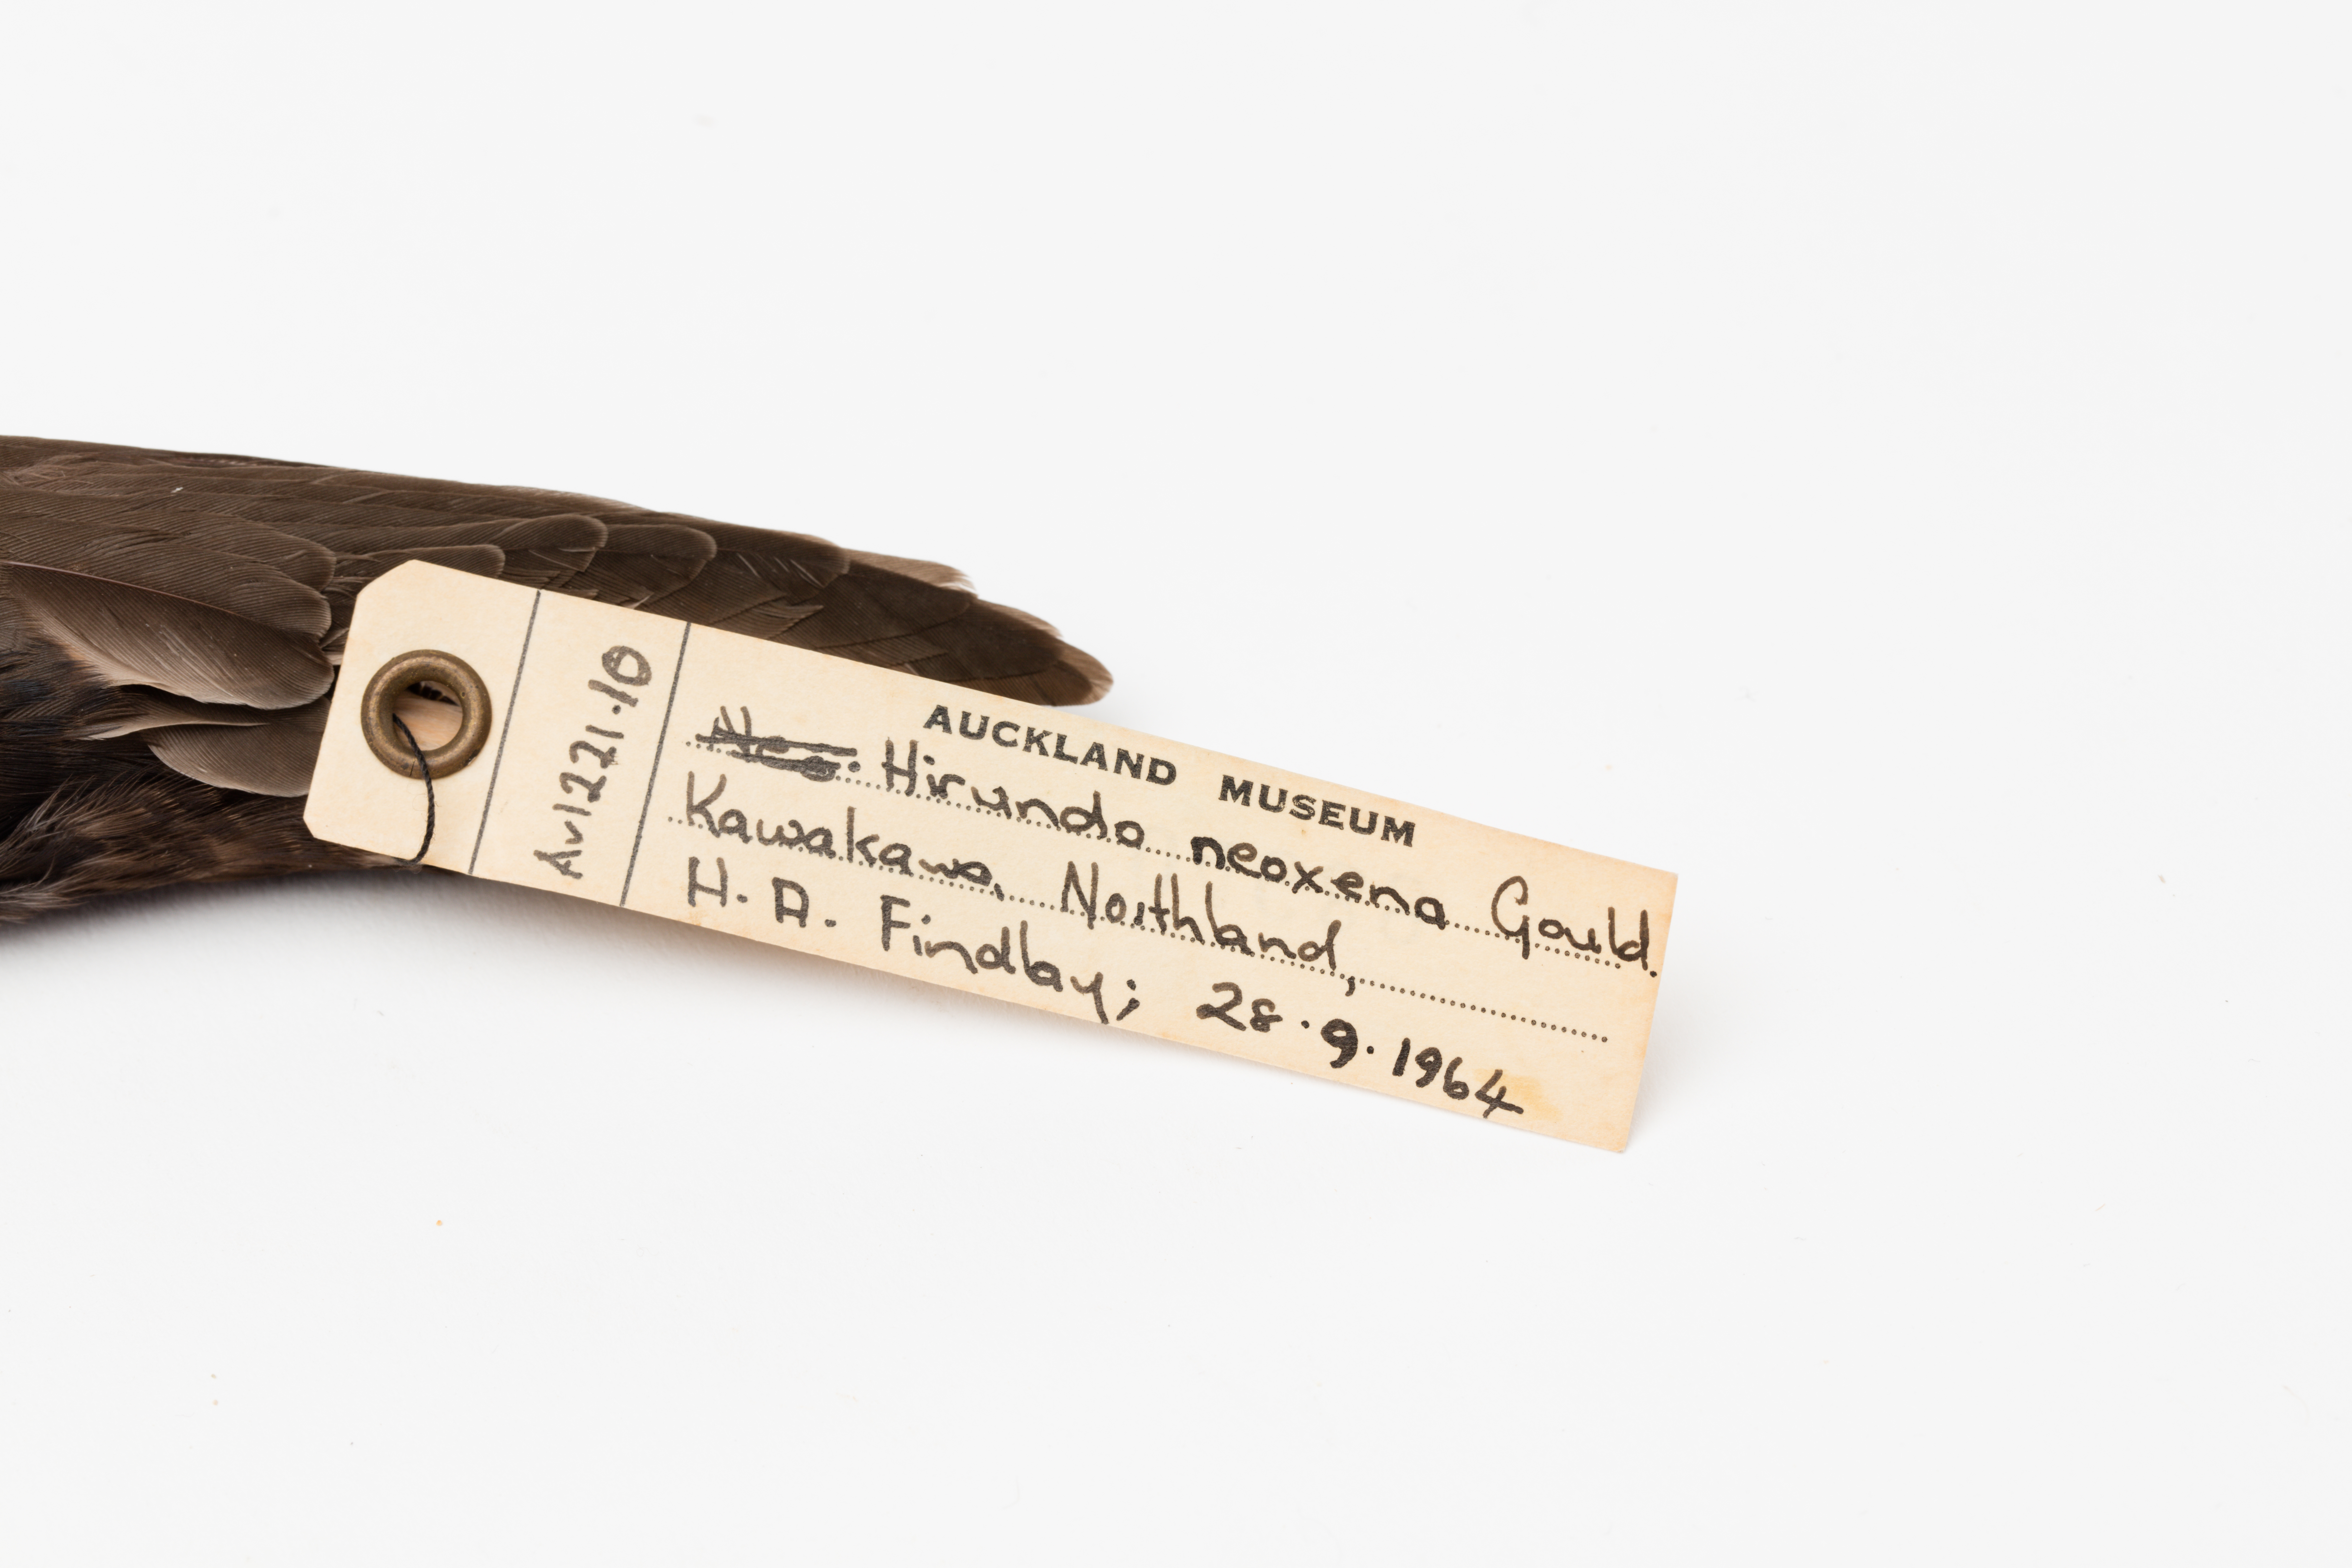 AUCKLAND MUSEUM
Hirundo neoxena Gould.
Kawakawa, Northland,
H. A. Findlay; 28.9.1964
Av1221.10